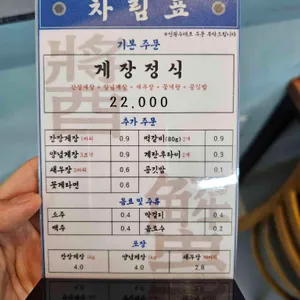 차림표
*인원수대로 주문 부탁드립니다
기본 주문
게장정식
간장게장 + 양념게장 + 새우장 + 꽃게탕 + 공깃밥
22,000
추가 주문
간장게장 0.9 떡갈비(80g) 0.9
양념게장 0.9 계란후라이 0.3
새우장 0.6 공깃밥 0.1
꽃게라면 0.6
음료 및 주류
소주 0.4 막걸리 0.4
맥주 0.4 음료수 0.2
포장
간장게장 1kg 양념게장 1kg 새우장
4.0 4.0 2.8